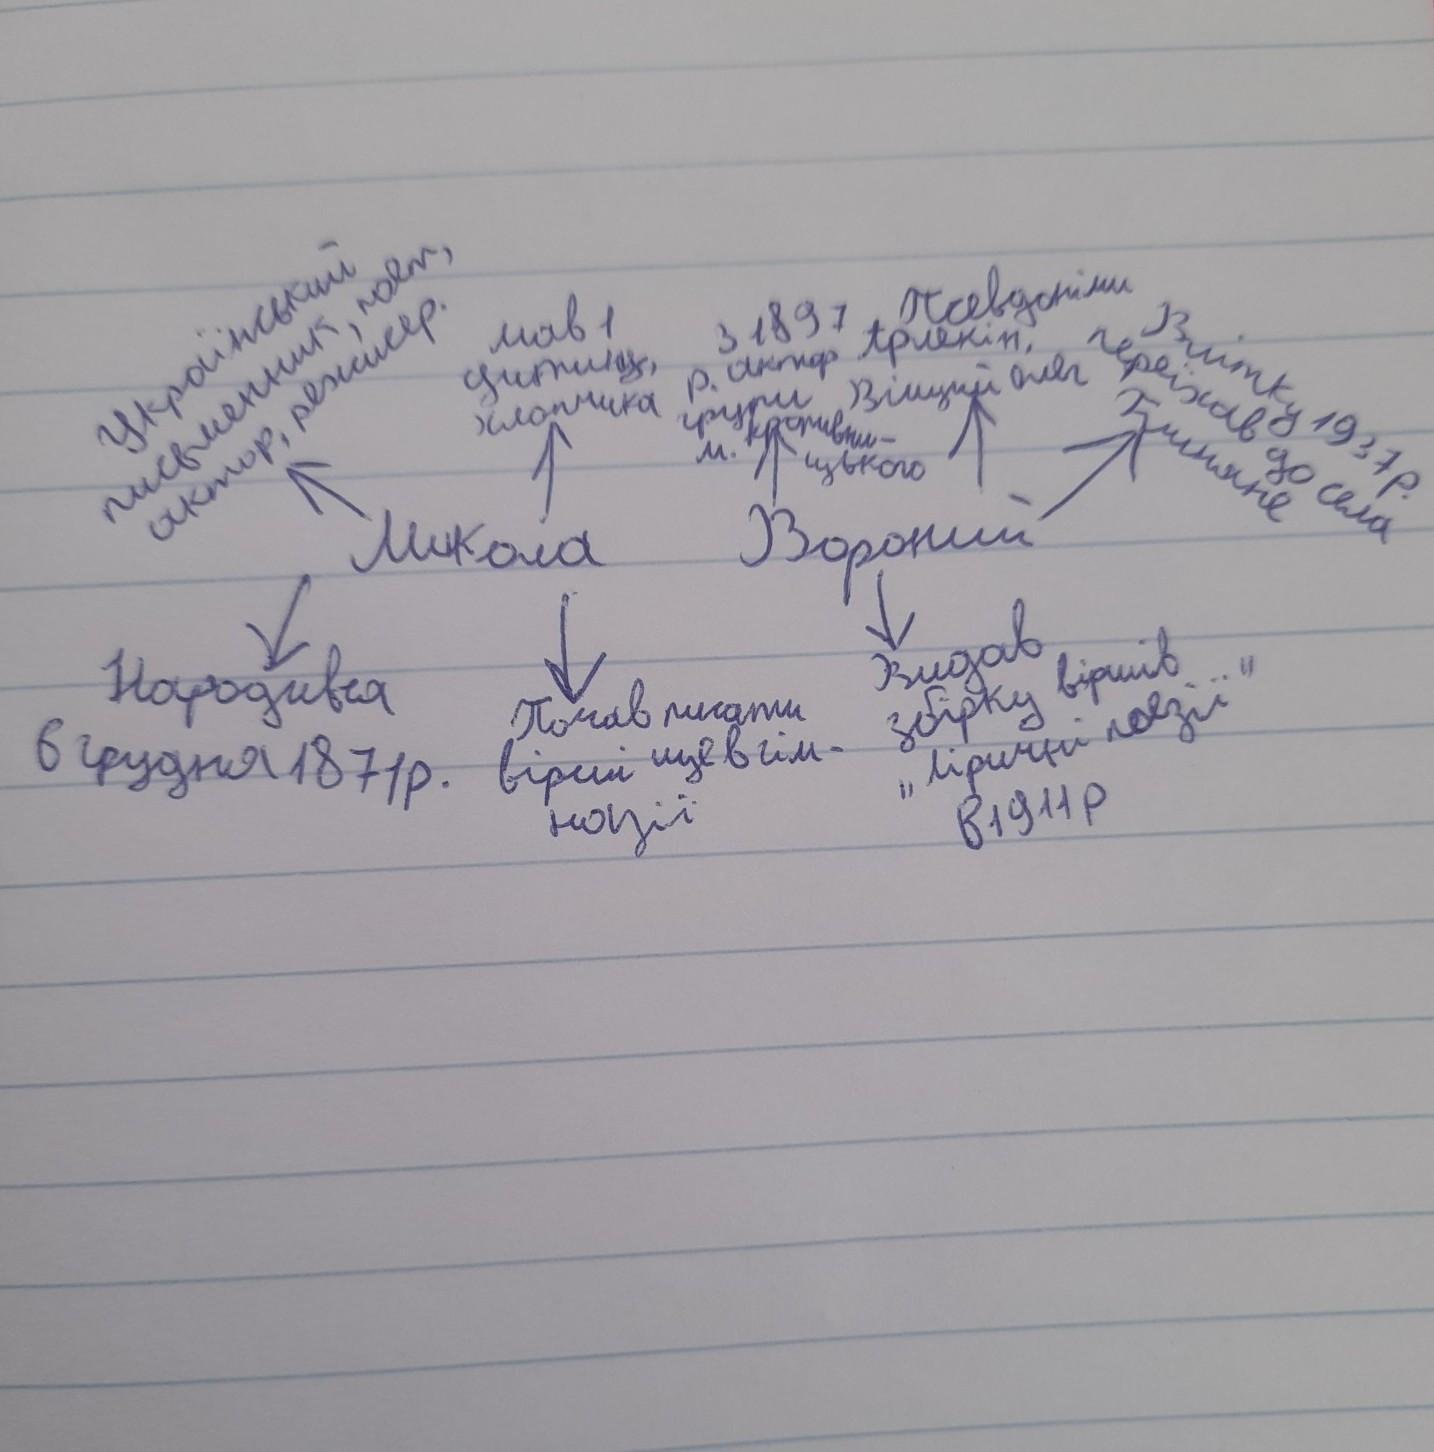 Український
письменник, поет,
актор, режисер.
мав 1
дитину,
хлопчика
З 1897
р. актор
групи
м. Кропивни-
цького
Псевдоніми
Арлекін,
Віщий Олег
Влітку 1937 р.
переїхав до села
Глиняне
Микола Вороний
Народився
6 грудня 1871р.
Почав писати
вірші ще в гім-
назії
Видав
збірку віршів
„Ліричні поезії"
в 1911 р